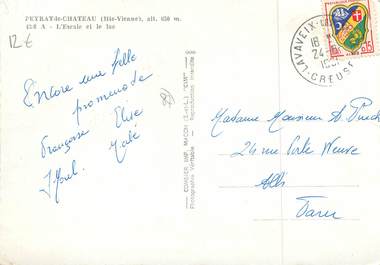 PEYRAT-le-CHATEAU (Hte-Vienne), alt. 650 m.
42.6 A - L'Escale et le lac
12 €
Encore une belle
promenade
Françoise Elise
COMBIER IMP. MACON (S.-et-L.) "CIM"
Photographie Véritable - Reproduction Interdite
LAVAVEIX-
CREUSE
18
24-8
Madame Monsieur A.
24 rue Porte Neuve
Albi
Tarn